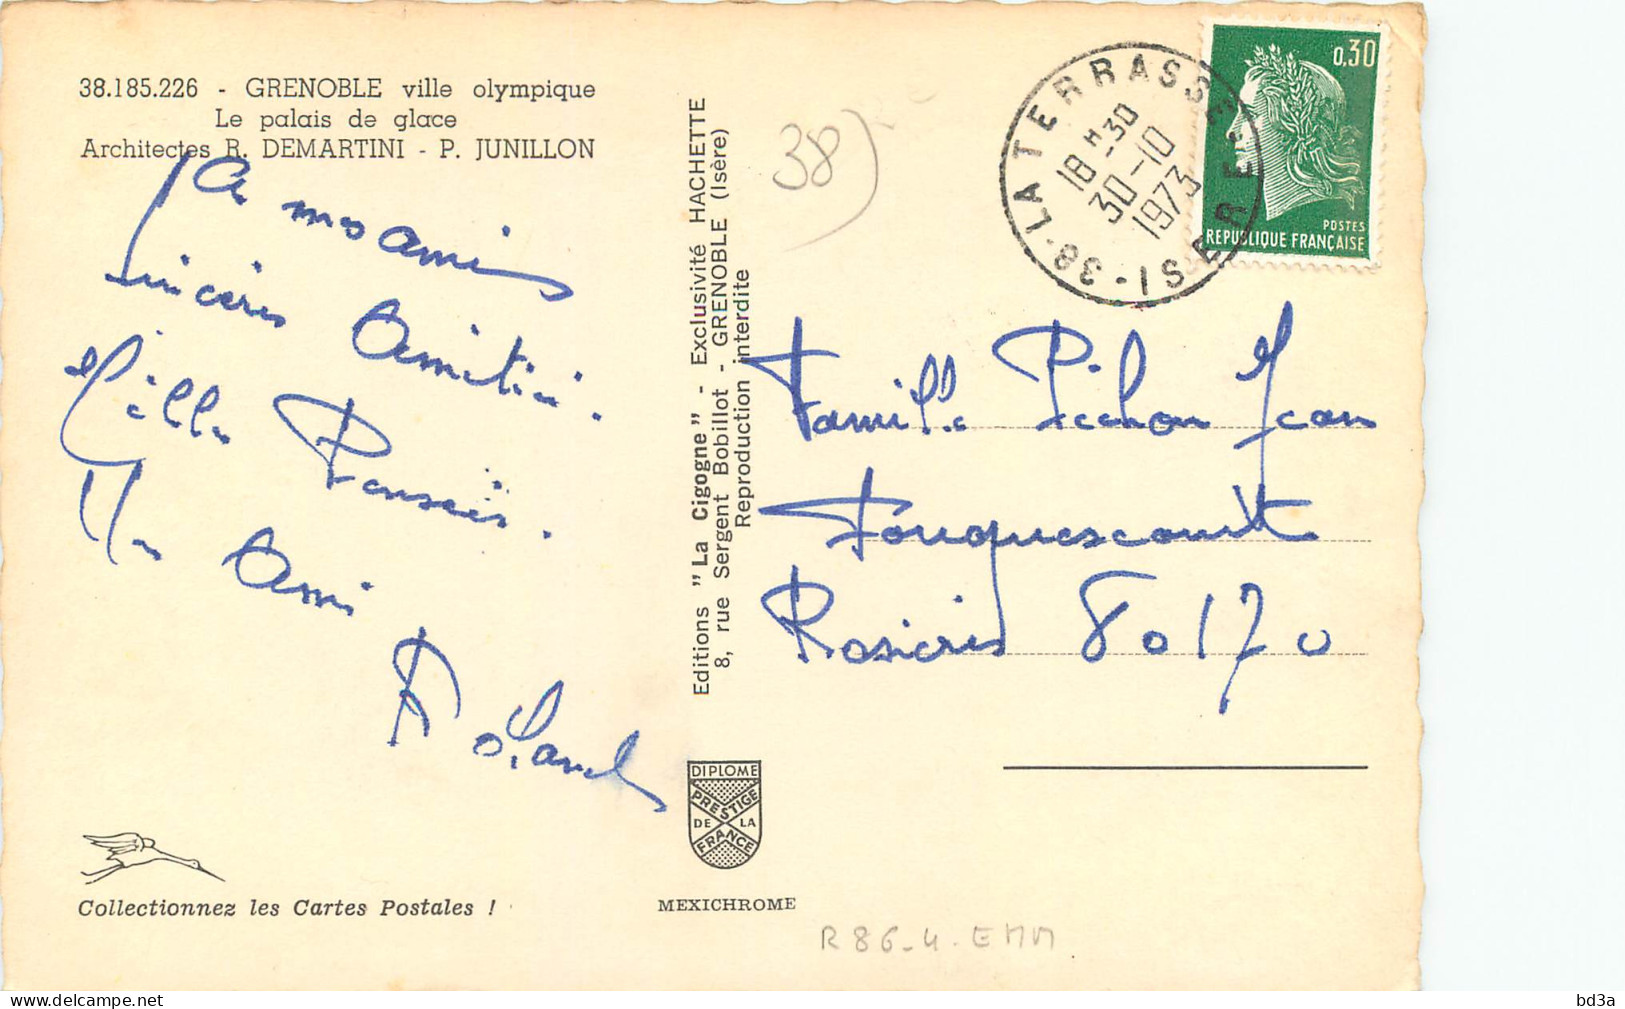 38.185.226 - GRENOBLE ville olympique
Le palais de glace
Architectes R. DEMARTINI - P. JUNILLON
A mes amis
sincères Amitiés.
Mille Pensées.
Un Ami
Roland
Collectionnez les Cartes Postales !
Editions "La Cigogne" - Exclusivité HACHETTE
8, rue Sergent Bobillot - GRENOBLE (Isère)
Reproduction interdite
DIPLOME
PRESTIGE
DE LA
FRANCE
MEXICHROME
38)
38 - LA TERRASSE - ISERE
18 H -30
30-10
1973
0,30
POSTES
REPUBLIQUE FRANÇAISE
Famille Pichon Jean
Fouquescourt
Rosières 80170
R86-4-EMM
www.delcampe.net
bd3a